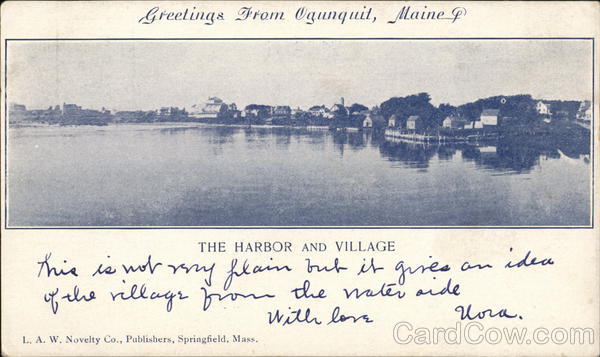 Greetings From Ogunquit, Maine
THE HARBOR AND VILLAGE
This is not very plain but it gives an idea
of the village from the water side
With love Nora.
L. A. W. Novelty Co., Publishers, Springfield, Mass.
CardCow.com